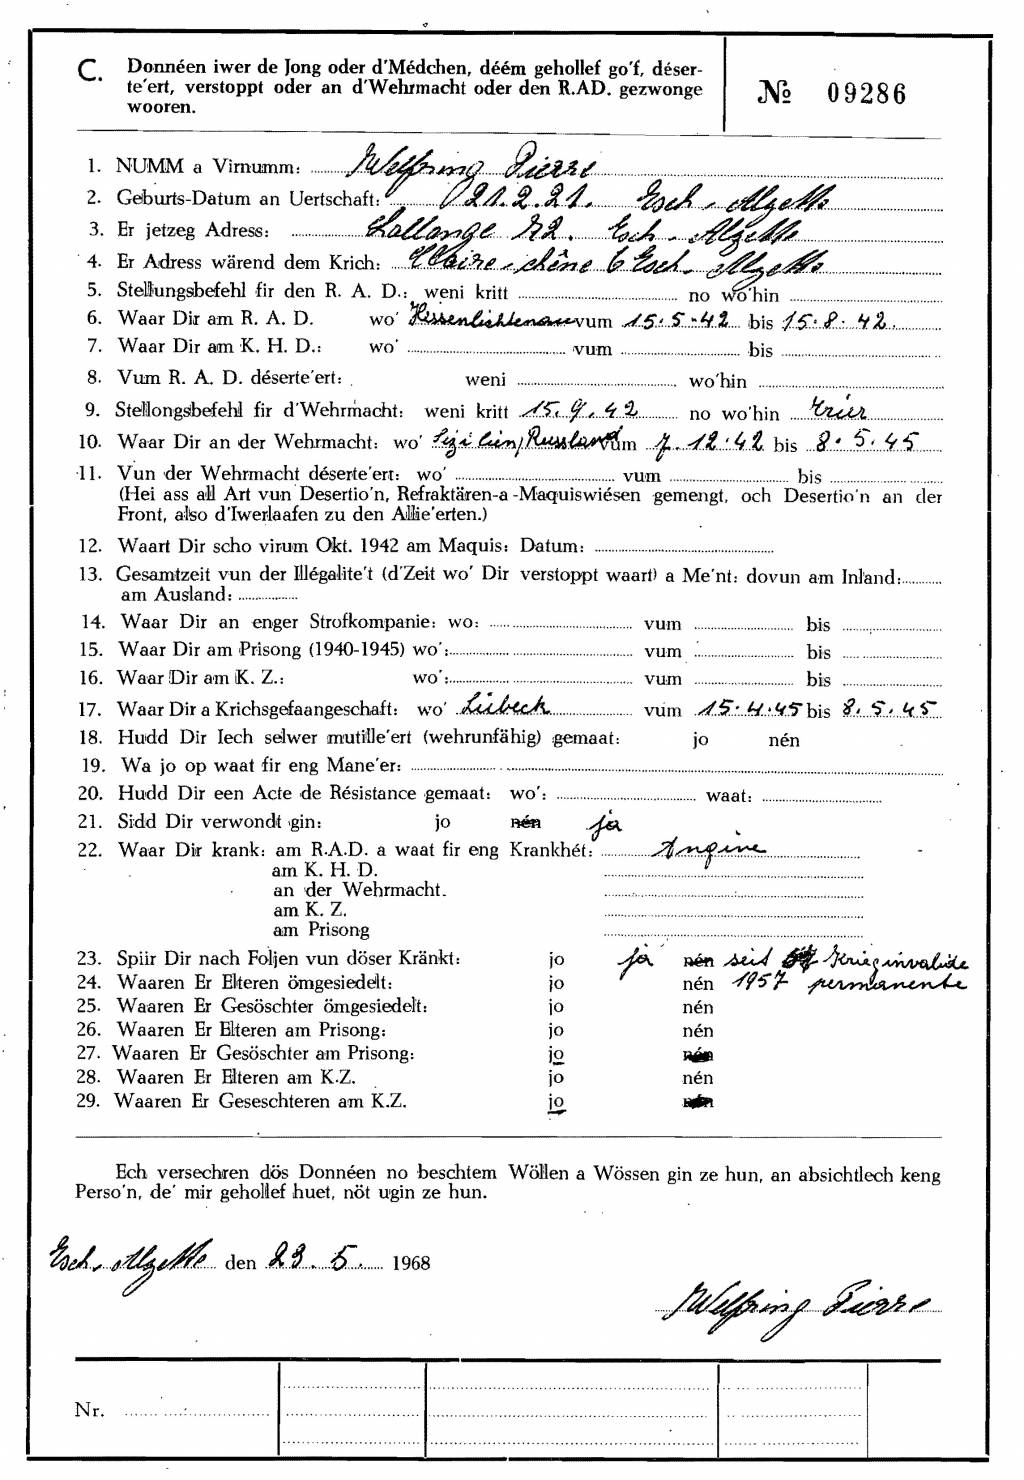 C. Donnéen iwer de Jong oder d'Médchen, déém gehollef go'f, déser-
te'ert, verstoppt oder an d'Wehrmacht oder den R.AD. gezwonge
wooren.
№ 09286
1. NUMM a Virnumm: Welfring Pierre
2. Geburts-Datum an Uertschaft: 21.2.21. Esch-Alzette
3. Er jetzeg Adress: Lallange 72. Esch-Alzette
4. Er Adress wärend dem Krich: Claire-chêne 6 Esch-Alzette
5. Stellungsbefehl fir den R. A. D.: weni kritt no wo'hin
6. Waar Dir am R. A. D. wo' Hessenlichtenau vum 15.5.42 bis 15.8.42.
7. Waar Dir am K. H. D.: wo' vum bis
8. Vum R. A. D. déserte'ert: weni wo'hin
9. Stellongsbefehl fir d'Wehrmacht: weni kritt 15.9.42 no wo'hin Trier
10. Waar Dir an der Wehrmacht: wo' Sizilien, Russland vum 7.12.42 bis 8.5.45
11. Vun der Wehrmacht déserte'ert: wo' vum bis
(Hei ass all Art vun Desertio'n, Refraktären-a-Maquiswiésen gemengt, och Desertio'n an der
Front, also d'Iwerlaafen zu den Allie'erten.)
12. Waart Dir scho virum Okt. 1942 am Maquis: Datum:
13. Gesamtzeit vun der Illégalite't (d'Zeit wo' Dir verstoppt waart) a Me'nt: dovun am Inland:
am Ausland:
14. Waar Dir an enger Strofkompanie: wo: vum bis
15. Waar Dir am Prisong (1940-1945) wo': vum bis
16. Waar Dir am K. Z.: wo': vum bis
17. Waar Dir a Krichsgefaangeschaft: wo' Lübeck vum 15.4.45 bis 8.5.45
18. Hudd Dir Iech selwer mutille'ert (wehrunfähig) gemaat: jo nén
19. Wa jo op waat fir eng Mane'er:
20. Hudd Dir een Acte de Résistance gemaat: wo': waat:
21. Sidd Dir verwondt gin: jo nén ja
22. Waar Dir krank: am R.A.D. a waat fir eng Krankhét: Angine
am K. H. D.
an der Wehrmacht.
am K. Z.
am Prisong
23. Spiir Dir nach Foljen vun döser Kränkt: jo ja nén seit Krieginvalide
24. Waaren Er Elteren ömgesiedelt: jo nén 1957 permanente
25. Waaren Er Gesöschter ömgesiedelt: jo nén
26. Waaren Er Elteren am Prisong: jo nén
27. Waaren Er Gesöschter am Prisong: jo nén
28. Waaren Er Elteren am K.Z. jo nén
29. Waaren Er Geseschteren am K.Z. jo nén
Ech versechren dös Donnéen no beschtem Wöllen a Wössen gin ze hun, an absichtlech keng
Perso'n, de' mir gehollef huet, nöt ugin ze hun.
Esch-Alzette den 23.5. 1968
Welfring Pierre
Nr.